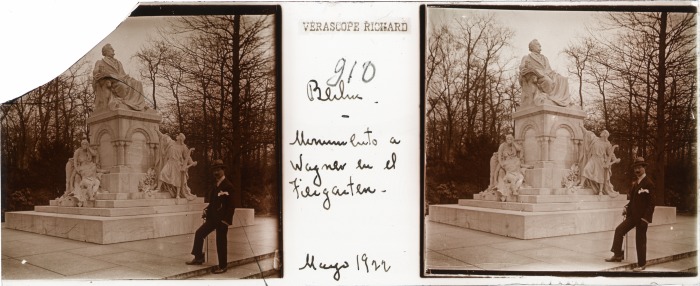 VERASCOPE RICHARD
910
Berlin -
-
Monumento a
Wagner en el
Tiergarten -
Mayo 1922